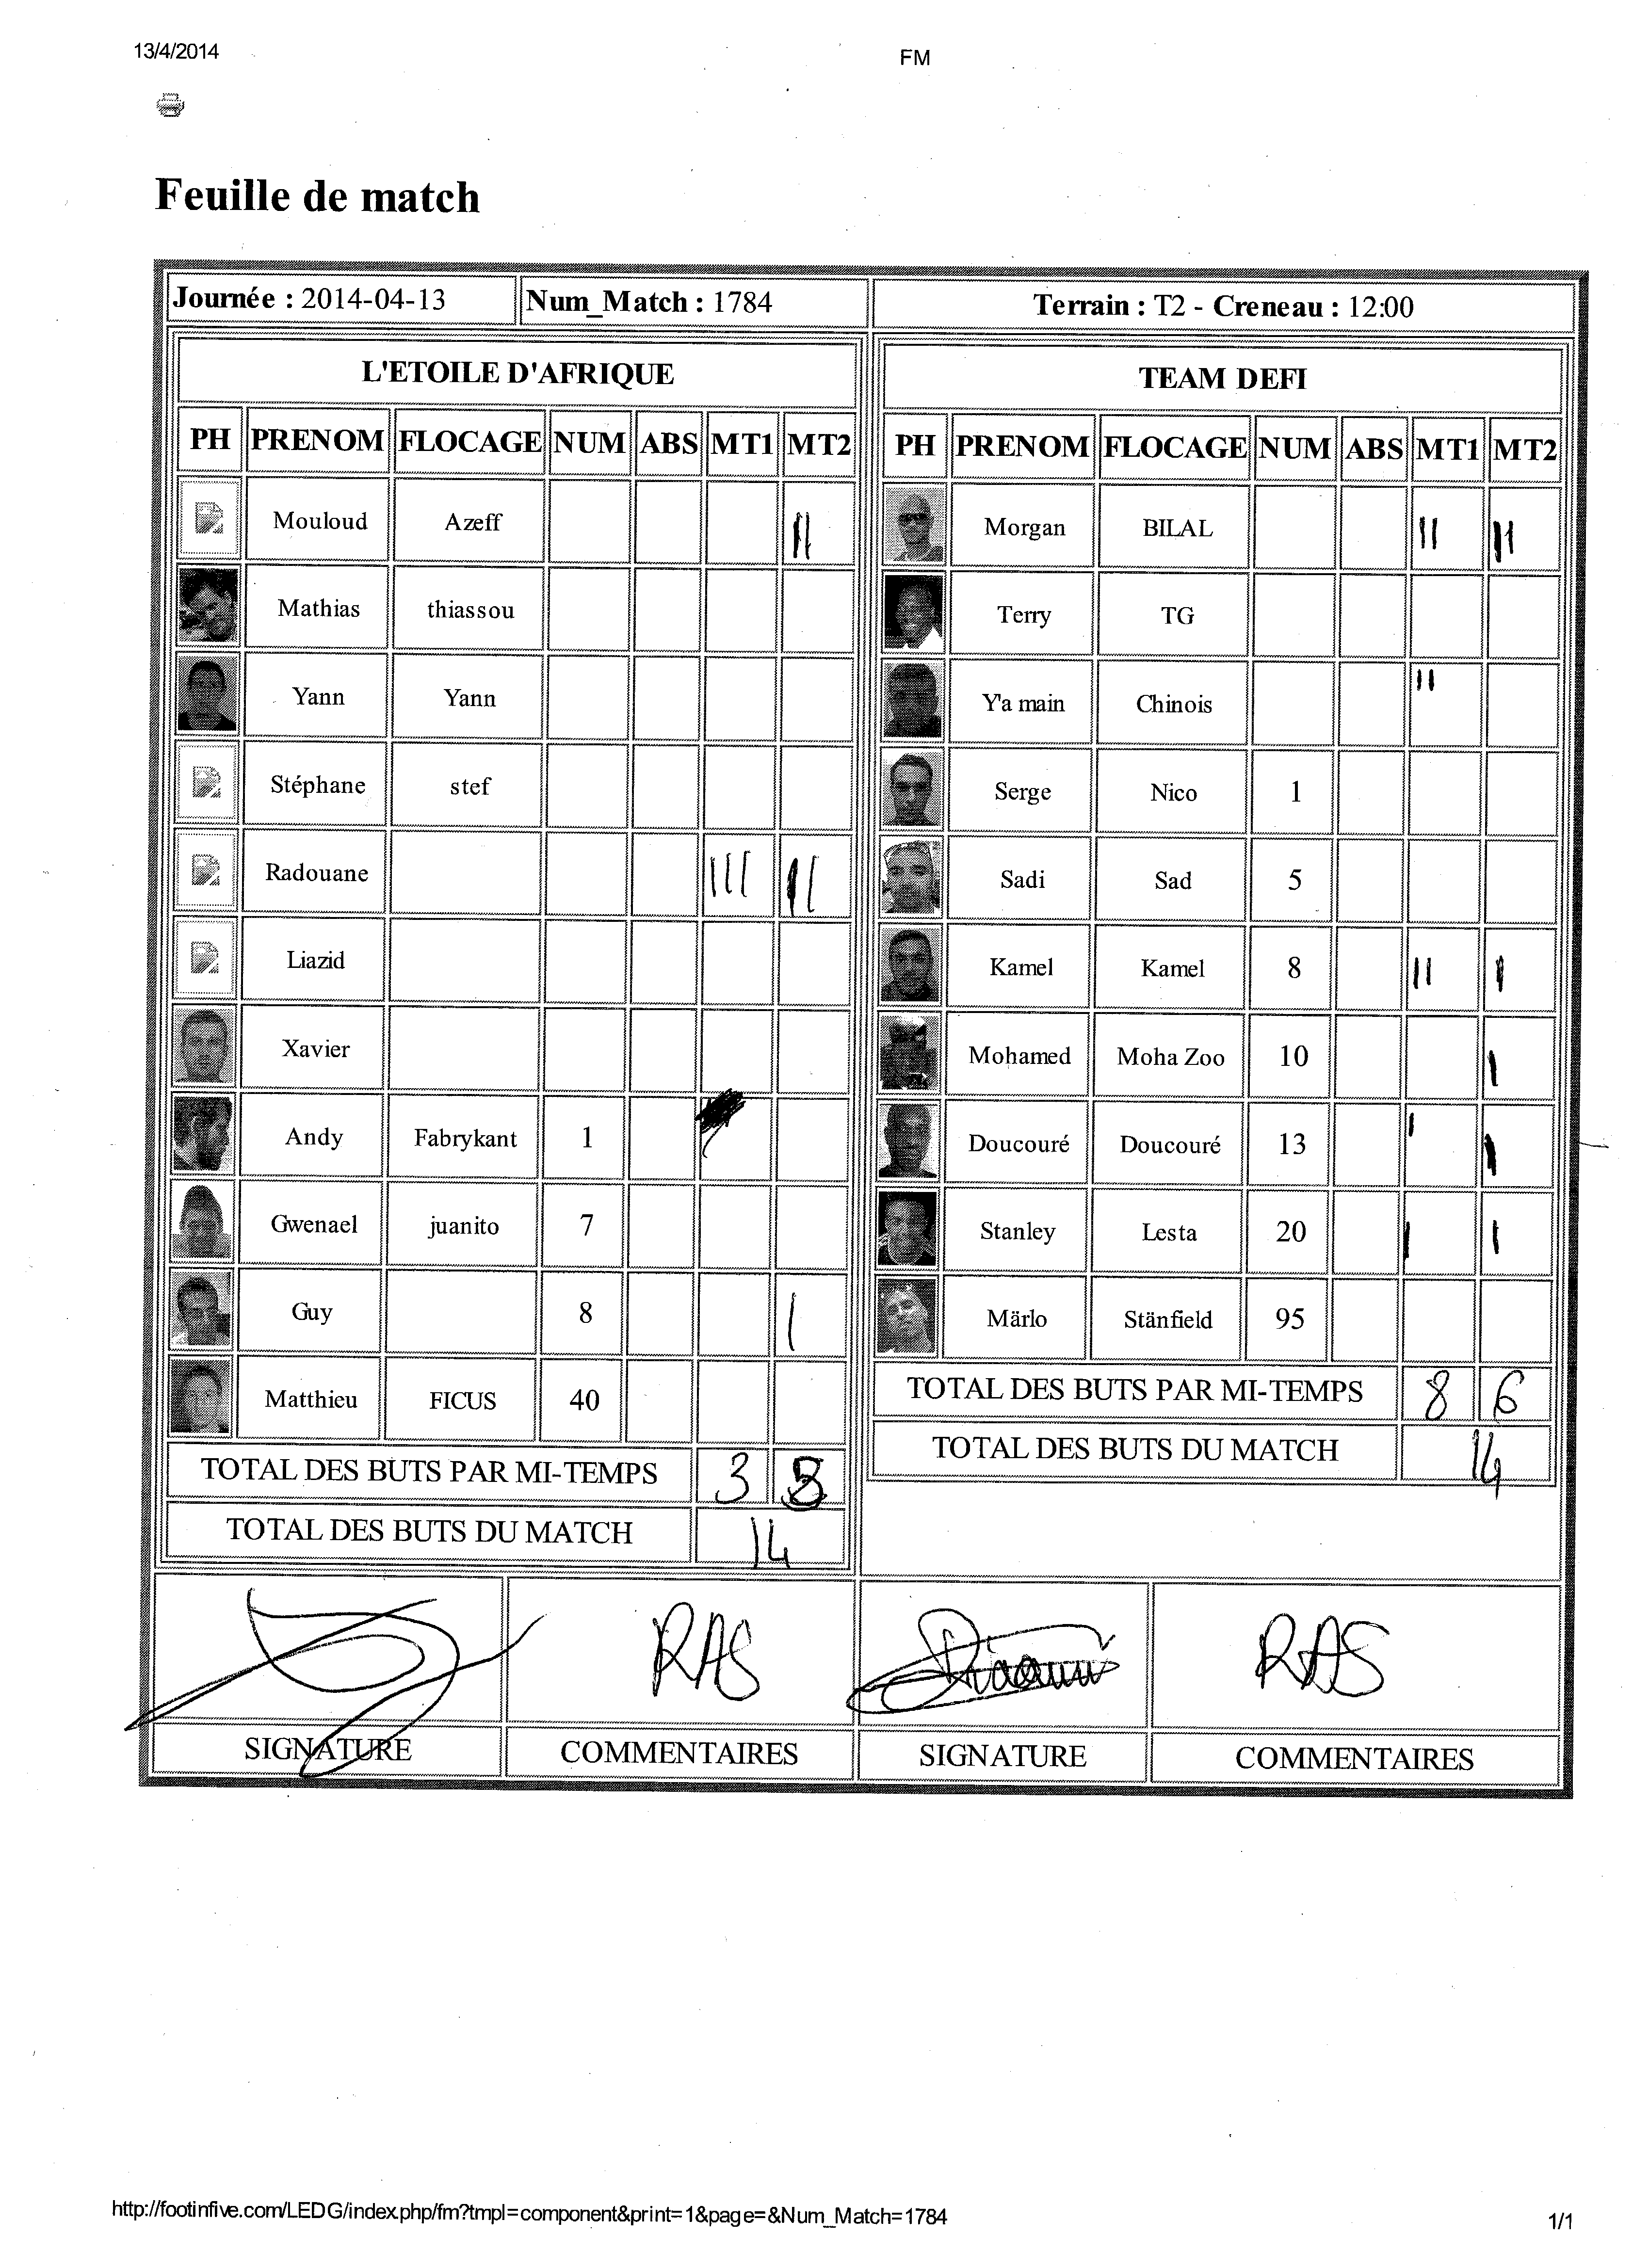 13/4/2014
FM
Feuille de match
Journée : 2014-04-13 Num_Match : 1784 Terrain : T2 - Creneau : 12:00
L'ETOILE D'AFRIQUE
PH PRENOM FLOCAGE NUM ABS MT1 MT2
Mouloud Azeff II
Mathias thiassou
Yann Yann
Stéphane stef
Radouane III II
Liazid
Xavier
Andy Fabrykant 1
Gwenael juanito 7
Guy 8 I
Matthieu FICUS 40
TOTAL DES BUTS PAR MI-TEMPS 3
TOTAL DES BUTS DU MATCH 14
TEAM DEFI
PH PRENOM FLOCAGE NUM ABS MT1 MT2
Morgan BILAL II II
Terry TG
Y'a main Chinois II
Serge Nico 1
Sadi Sad 5
Kamel Kamel 8 II I
Mohamed Moha Zoo 10 I
Doucouré Doucouré 13 I I
Stanley Lesta 20 I I
Märlo Stänfield 95
TOTAL DES BUTS PAR MI-TEMPS 8 6
TOTAL DES BUTS DU MATCH 14
RAS RAS
SIGNATURE COMMENTAIRES SIGNATURE COMMENTAIRES
http://footinfive.com/LEDG/index.php/fm?tmpl=component&print=1&page=&Num_Match=1784
1/1